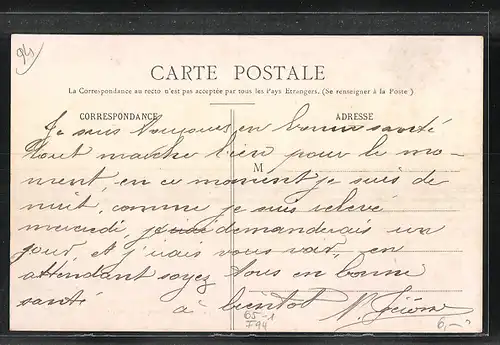 94
CARTE POSTALE
La Correspondance au recto n'est pas acceptée par tous les Pays Etrangers. (Se renseigner à la Poste)
CORRESPONDANCE
ADRESSE
M
Je suis toujours en bonne santé
tout marche bien pour le mo-
ment, en ce moment je suis de
nuit, comme je suis relevé
mercredi, je demanderais un
jour, et j'irais vous voir, en
attendant soyez tous en bonne
santé
à bientot
65-1
F94
6,-